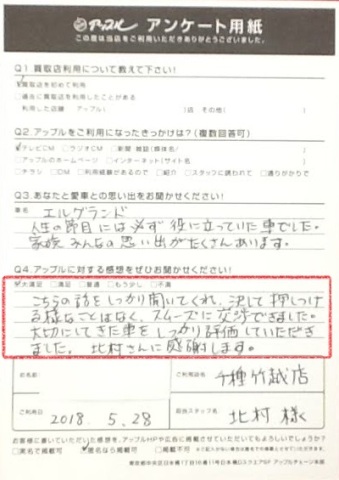 アップル アンケート用紙
この度は当店をご利用いただきありがとうございました。
Q1.買取店利用について教えて下さい!
買取店を初めて利用
過去に買取店を利用したことがある
利用した店舗 アップル( )店 その他( )
Q2.アップルをご利用になったきっかけは?(複数回答可)
テレビCM ラジオCM 新聞 雑誌(媒体名/ )
アップルのホームページ インターネット(サイト名/ )
チラシ DM 利用経験があるので 紹介 スタッフに誘われて 通りがかりで
Q3.あなたと愛車との思い出をお聞かせください!
車名 エルグランド
人生の節目には必ず役に立っていた車でした。
家族みんなの思い出がたくさんあります。
Q4.アップルに対する感想をぜひお聞かせください!
大満足 満足 普通 もう少し 不満
こちらの話をしっかり聞いてくれ、決して押しつけ
る様なことはなく、スムーズに交渉できました。
大切にしてきた車をしっかり評価していただき
ました。北村さんに感謝します。
お名前 ご利用店名 千種竹越店
ご利用日 2018. 5. 28 担当スタッフ名 北村 様
お客様に書いていただいた感想を、アップルHPや広告に掲載させていただいてもよろしいでしょうか?
実名で掲載可 匿名なら掲載可 掲載不可